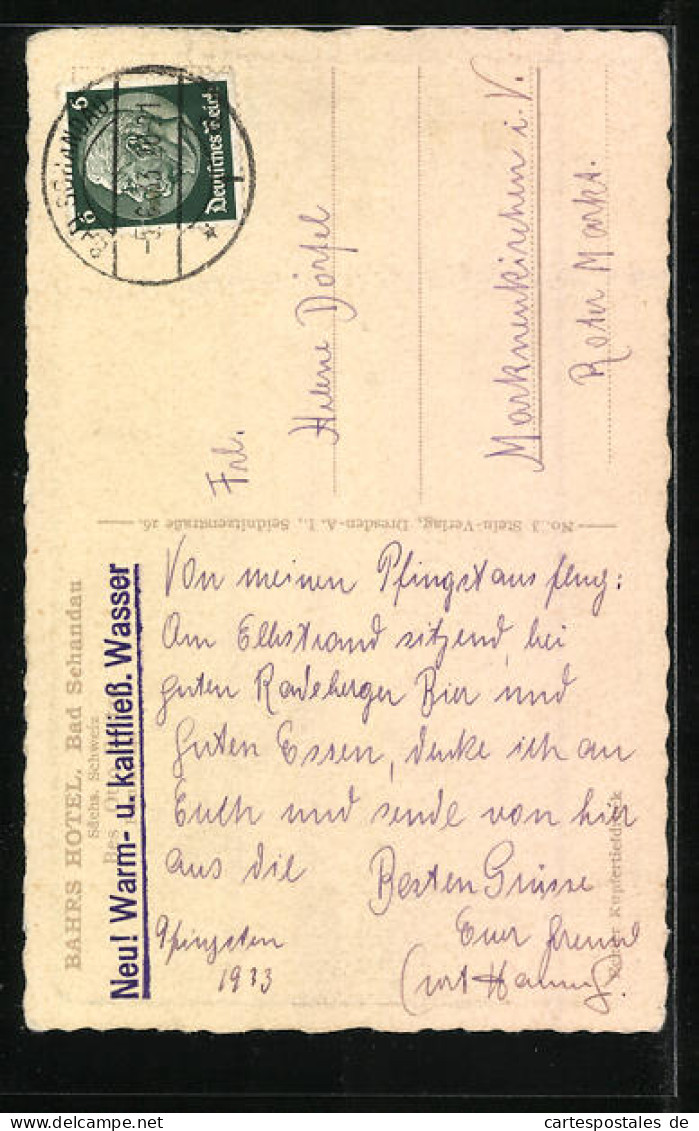 BAD SCHANDAU
6
6
Deutsches Reich
Frl.
Helene Dörfel
Markneukirchen i. V.
Roter Markt.
No. 3 Stein-Verlag, Dresden-A. I., Seidnitzerstraße 16.
BAHRS HOTEL, Bad Schandau
Sächs. Schweiz
Bes. Otto
Neu! Warm- u. kaltfließ. Wasser
Von meinen Pfingstausflug:
Am Elbstrand sitzend, bei
guten Radeberger Bier und
guten Essen, denke ich an
Euch und sende von hier
aus die Besten Grüsse
Pfingsten Euer Freund
1933 Curt
Kupfertiefdruck
delcampe.net
cartespostales de